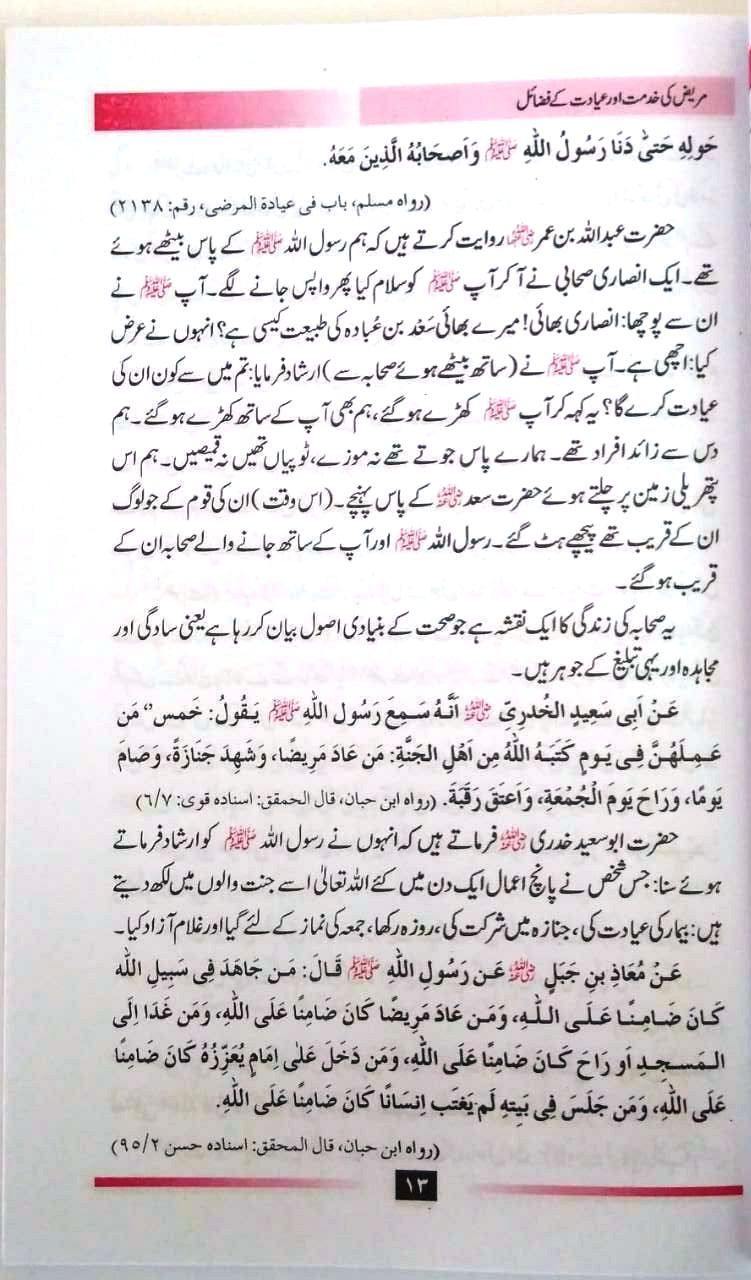 مریض کی خدمت اور عیادت کے فضائل
حَولِهِ حَتّٰى دَنَا رَسُولُ اللهِ ﷺ وَاَصحَابُهُ الَّذِينَ مَعَهُ.
(رواه مسلم، باب فی عیادة المرضی، رقم: ۲۱۳۸)
حضرت عبداللہ بن عمر رضی اللہ عنہما روایت کرتے ہیں کہ ہم رسول اللہ ﷺ کے پاس بیٹھے ہوئے
تھے۔ ایک انصاری صحابی نے آ کر آپ ﷺ کو سلام کیا پھر واپس جانے لگے۔ آپ ﷺ نے
ان سے پوچھا: انصاری بھائی! میرے بھائی سَعْد بن عُبادہ کی طبیعت کیسی ہے؟ انہوں نے عرض
کیا: اچھی ہے۔ آپ ﷺ نے (ساتھ بیٹھے ہوئے صحابہ سے) ارشاد فرمایا: تم میں سے کون ان کی
عیادت کرے گا؟ یہ کہہ کر آپ ﷺ کھڑے ہو گئے، ہم بھی آپ کے ساتھ کھڑے ہو گئے۔ ہم
دس سے زائد افراد تھے۔ ہمارے پاس جوتے تھے نہ موزے، ٹوپیاں تھیں نہ قمیصیں۔ ہم اس
پتھریلی زمین پر چلتے ہوئے حضرت سعد رضی اللہ عنہ کے پاس پہنچے۔ (اس وقت) ان کی قوم کے جو لوگ
ان کے قریب تھے پیچھے ہٹ گئے۔ رسول اللہ ﷺ اور آپ کے ساتھ جانے والے صحابہ ان کے
قریب ہو گئے۔
یہ صحابہ کی زندگی کا ایک نقشہ ہے جو صحت کے بنیادی اصول بیان کر رہا ہے یعنی سادگی اور
مجاہدہ اور یہی تبلیغ کے جوہر ہیں۔
عَنْ اَبِى سَعِيدٍ الخُدرِىِّ رضی اللہ عنہ اَنَّهُ سَمِعَ رَسُولَ اللهِ ﷺ يَقُولُ: خَمس" مَن
عَمِلَهُنَّ فِى يَومٍ كَتَبَهُ اللهُ مِن اَهْلِ الجَنَّةِ: مَن عَادَ مَرِيضًا، وَشَهِدَ جَنَازَةً، وَصَامَ
يَومًا، وَرَاحَ يَومَ الْجُمْعَةِ، وَاَعتَقَ رَقَبَةً. (رواه ابن حبان، قال الحمقق: اسناده قوی: ۶/۷)
حضرت ابو سعید خدری رضی اللہ عنہ فرماتے ہیں کہ انہوں نے رسول اللہ ﷺ کو ارشاد فرماتے
ہوئے سنا: جس شخص نے پانچ اعمال ایک دن میں کئے اللہ تعالیٰ اسے جنت والوں میں لکھ دیتے
ہیں: بیمار کی عیادت کی، جنازہ میں شرکت کی، روزہ رکھا، جمعہ کی نماز کے لئے گیا اور غلام آزاد کیا۔
عَنْ مُعَاذِ بنِ جَبَلٍ رضی اللہ عنہ عَن رَسُولِ اللهِ ﷺ قَالَ: مَن جَاهَدَ فِى سَبِيلِ الله
كَانَ ضَامِنًا عَلَى اللهِ، وَمَن عَادَ مَرِيضًا كَانَ ضَامِنًا عَلَى اللهِ، وَمَن غَدَا اِلَى
المَسجِدِ اَو رَاحَ كَانَ ضَامِنًا عَلَى اللهِ، وَمَن دَخَلَ عَلٰى اِمَامٍ يُعَزِّزُهُ كَانَ ضَامِنًا
عَلَى اللهِ، وَمَن جَلَسَ فِى بَيتِهِ لَم يَغتَب اِنسَانًا كَانَ ضَامِنًا عَلَى اللهِ.
(رواه ابن حبان، قال المحقق: اسناده حسن ۹۵/۲)
۱۳